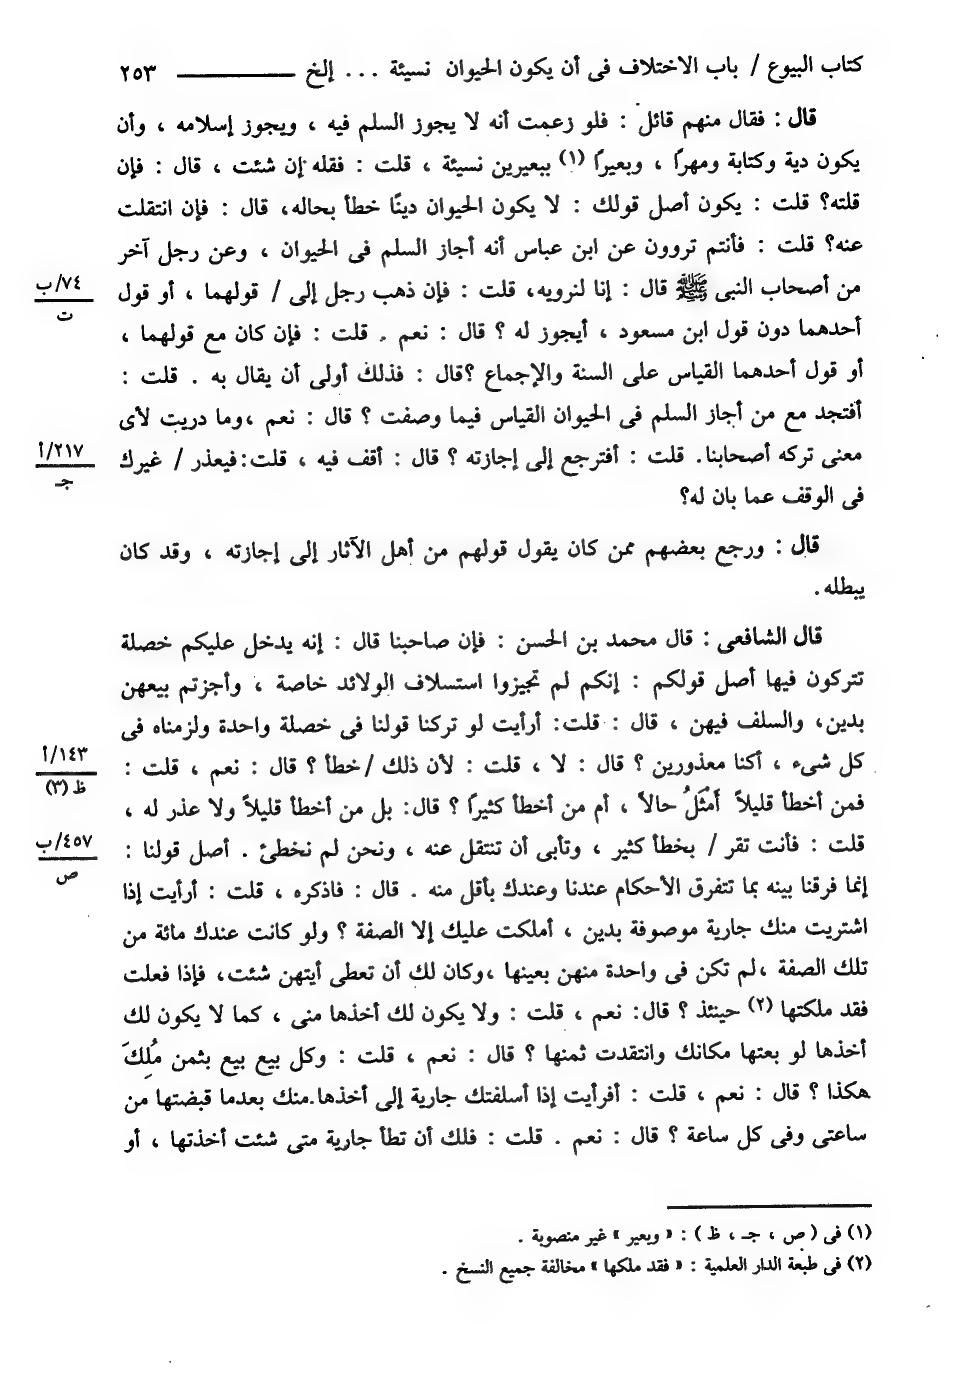 كتاب البيوع / باب الاختلاف فى أن يكون الحيوان نسيئة . . . إلخ ــــــــــ ٢٥٣
قال : فقال منهم قائل : فلو زعمت أنه لا يجوز السلم فيه ، ويجوز إسلامه ، وأن
يكون دية وكتابة ومهرًا ، وبعيرًا (١) ببعيرين نسيئة ، قلت : فقله إن شئت ، قال : فإن
قلته؟ قلت : يكون أصل قولك : لا يكون الحيوان دينًا خطأ بحاله، قال : فإن انتقلت
عنه؟ قلت : فأنتم تروون عن ابن عباس أنه أجاز السلم فى الحيوان ، وعن رجل آخر
من أصحاب النبى ﷺ قال : إنا لنرويه، قلت : فإن ذهب رجل إلى / قولهما ، أو قول
٧٤/ب
ت
أحدهما دون قول ابن مسعود ، أيجوز له ؟ قال : نعم . قلت : فإن كان مع قولهما ،
أو قول أحدهما القياس على السنة والإجماع ؟قال : فذلك أولى أن يقال به . قلت :
أفتجد مع من أجاز السلم فى الحيوان القياس فيما وصفت ؟ قال : نعم ،وما دريت لأى
معنى تركه أصحابنا. قلت : أفترجع إلى إجازته ؟ قال : أقف فيه ، قلت:فيعذر / غيرك
٢١٧/أ
جـ
فى الوقف عما بان له؟
قال : ورجع بعضهم ممن كان يقول قولهم من أهل الآثار إلى إجازته ، وقد كان
يبطله.
قال الشافعى : قال محمد بن الحسن : فإن صاحبنا قال : إنه يدخل عليكم خصلة
تتركون فيها أصل قولكم : إنكم لم تجيزوا استسلاف الولائد خاصة ، وأجزتم بيعهن
بدين، والسلف فيهن ، قال : قلت: أرأيت لو تركنا قولنا فى خصلة واحدة ولزمناه فى
كل شىء ، أكنا معذورين ؟ قال : لا ، قلت : لأن ذلك /خطأ ؟ قال : نعم ، قلت :
١٤٣/أ
ظ (٣)
فمن أخطأ قليلاً أَمْثَلُ حالاً ، أم من أخطأ كثيرًا ؟ قال: بل من أخطأ قليلاً ولا عذر له ،
قلت : فأنت تقر / بخطأ كثير ، وتأبى أن تنتقل عنه ، ونحن لم نخطئ . أصل قولنا :
٤٥٧/ب
ص
إنما فرقنا بينه بما تتفرق الأحكام عندنا وعندك بأقل منه . قال : فاذكره ، قلت : أرأيت إذا
اشتريت منك جارية موصوفة بدين ، أملكت عليك إلا الصفة ؟ ولو كانت عندك مائة من
تلك الصفة ،لم تكن فى واحدة منهن بعينها ،وكان لك أن تعطى أيتهن شئت، فإذا فعلت
فقد ملكتها (٢) حينئذ ؟ قال: نعم ، قلت : ولا يكون لك أخذها منى ، كما لا يكون لك
أخذها لو بعتها مكانك وانتقدت ثمنها ؟ قال : نعم ، قلت : وكل بيع بيع بثمن مُلِكَ
هكذا ؟ قال : نعم ، قلت : أفرأيت إذا أسلفتك جارية إلى أخذها.منك بعدما قبضتها من
ساعتى وفى كل ساعة ؟ قال : نعم . قلت : فلك أن تطأ جارية متى شئت أخذتها ، أو
(١) فى ( ص ، جـ ، ظ ) : « وبعير » غير منصوبة .
(٢) فى طبعة الدار العلمية : « فقد ملكها » مخالفة جميع النسخ .